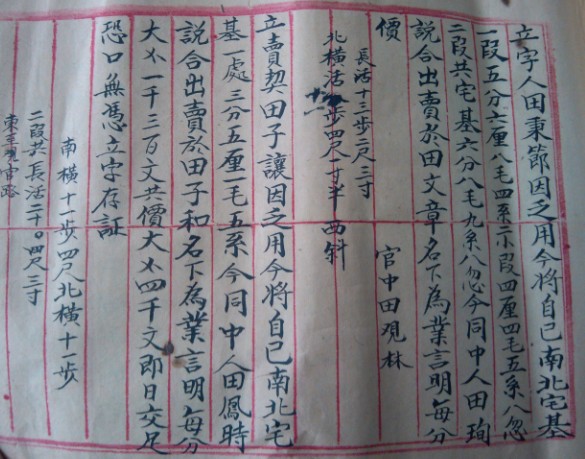 立字人田秉節因乏用今將自己南北宅基
一段五分六厘八毛四系二段四厘四毛五系八忽
二段共宅基六分八毛九系八忽今同中人田珣
說合出賣於田文章名下為業言明每分
價 官中田观林
長活十三步二尺三寸
北橫活 步四尺一寸半 西斜
立賣契田子讓因乏用今將自己南北宅
基一處三分五厘一毛五系今同中人田鳳時
說合出賣於田子和名下為業言明每分
大 一千二百文共價大 四千文即日交足
恐口無憑立字存証
南橫十一步四尺北橫十一步
二段共長活二十〇四尺三寸
東至 官路